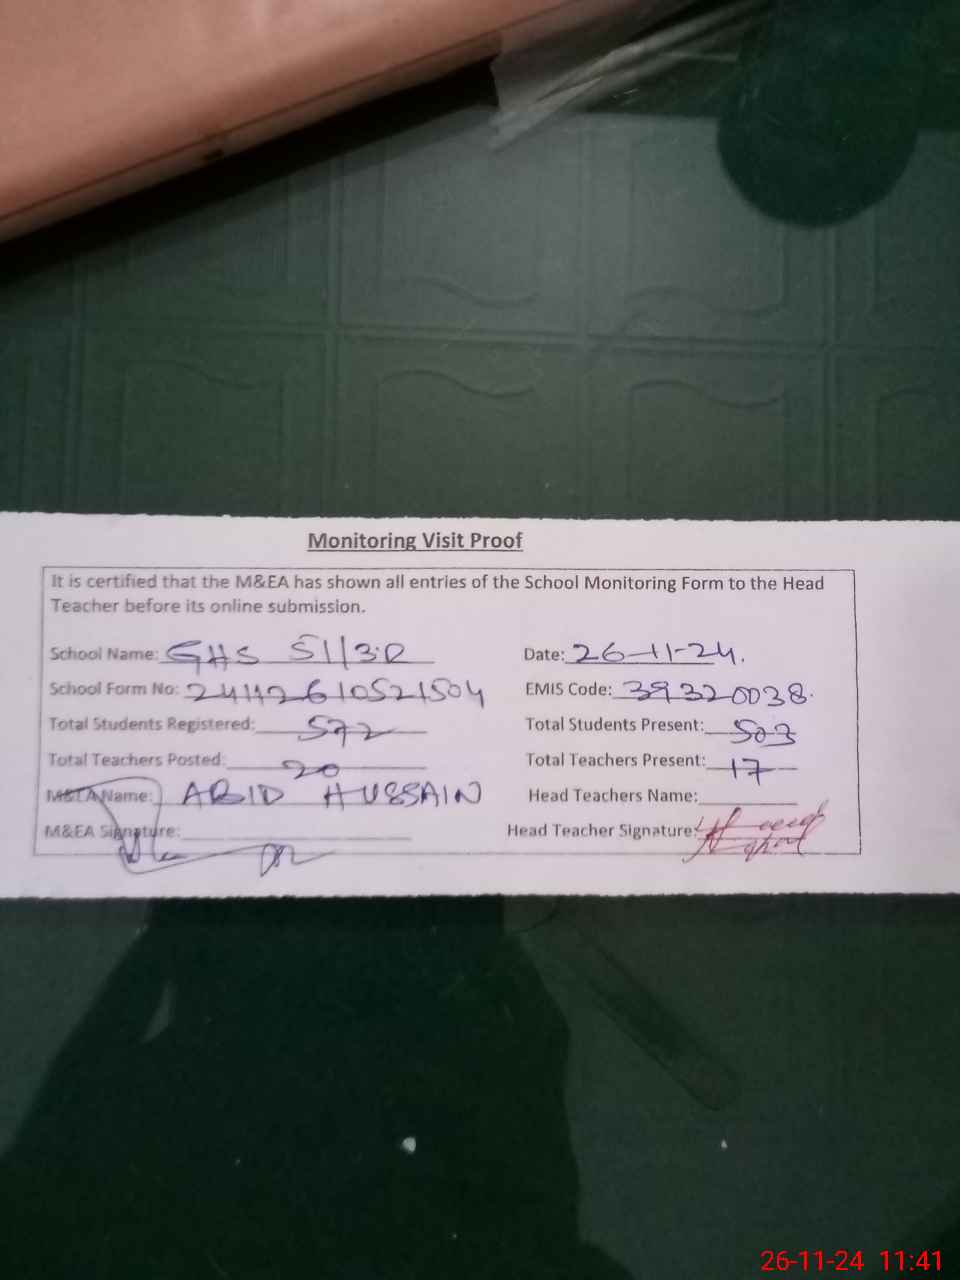 Monitoring Visit Proof
It is certified that the M&EA has shown all entries of the School Monitoring Form to the Head
Teacher before its online submission.
School Name: GHS 51/3.R Date: 26-11-24.
School Form No: 24112610521504 EMIS Code: 39320038.
Total Students Registered: 572 Total Students Present: 503
Total Teachers Posted: 20 Total Teachers Present: 17
M&EA Name: ABID HUSSAIN Head Teachers Name:
M&EA Signature: Head Teacher Signature:
26-11-24 11:41